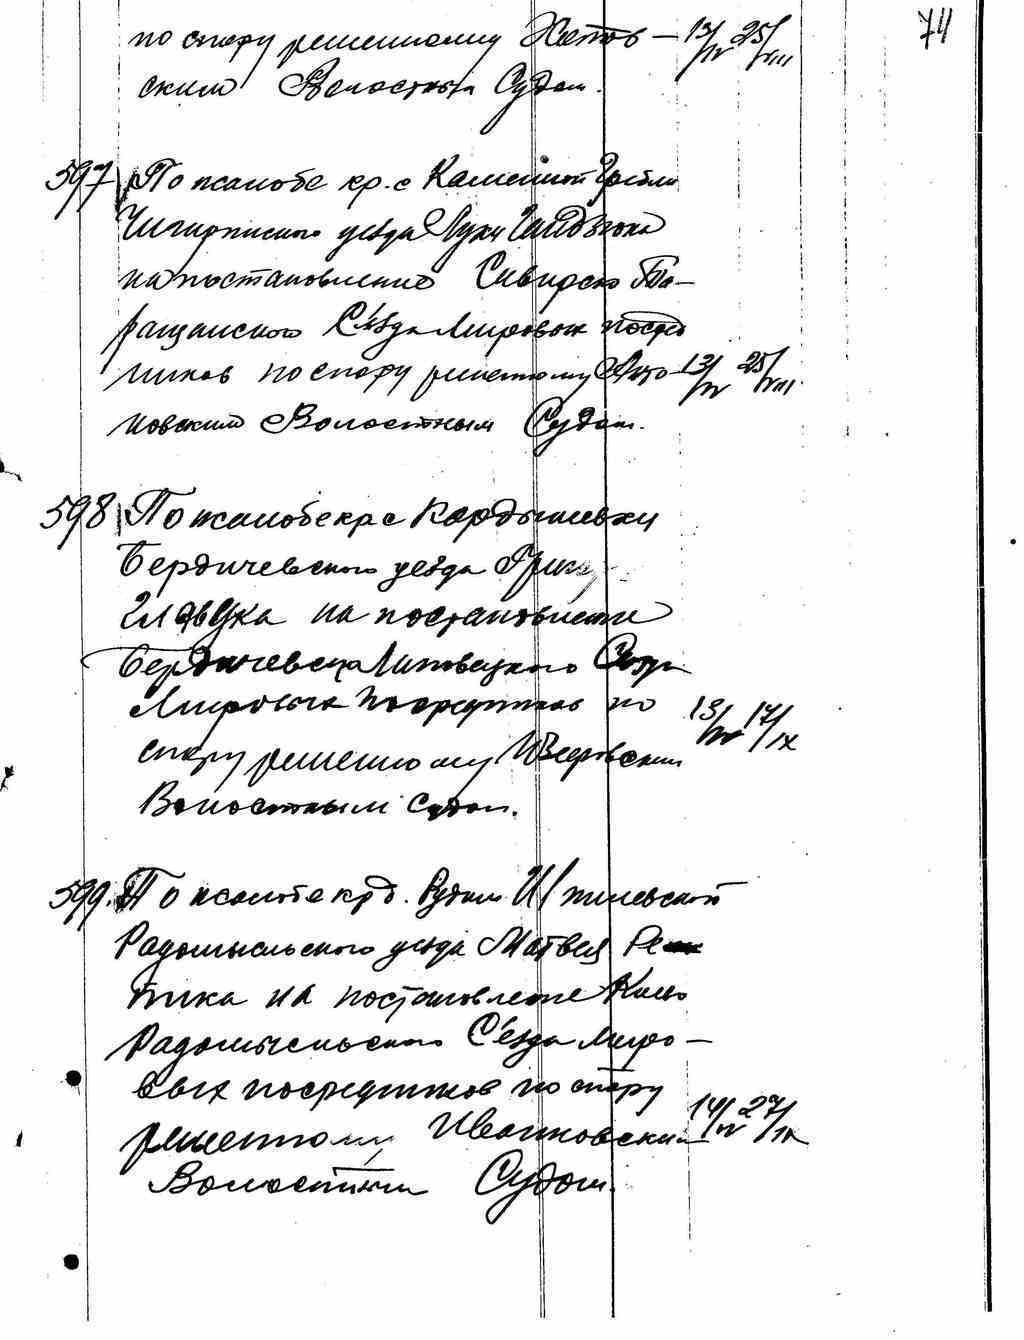 74
по спору решенному Хатов- 13/IV 25/VIII
ским Волостным Судом.
597 По жалобе кр. с Каменной Гребли
Чигиринского уезда Луки
на постановление Сквирско Та-
ращанского Съезда Мировых посред
ников по спору решенному 13/IV 25/VIII
новским Волостным Судом.
598 По жалобе кр с Кордышевки
Бердичевского уезда
на постановление
Бердичевско Липовецкого Съезда
Мировых Посредников по 13/IV 17/IX
спору решенному
Волостным Судом.
599. По жалобе кр д. Рудни
Радомысльского уезда Матвея Ре
тика на постановление Киево
Радомысльского Съезда Миро-
вых посредников по спору
решенному Иванковским 14/IV 27/IX
Волостным Судом.